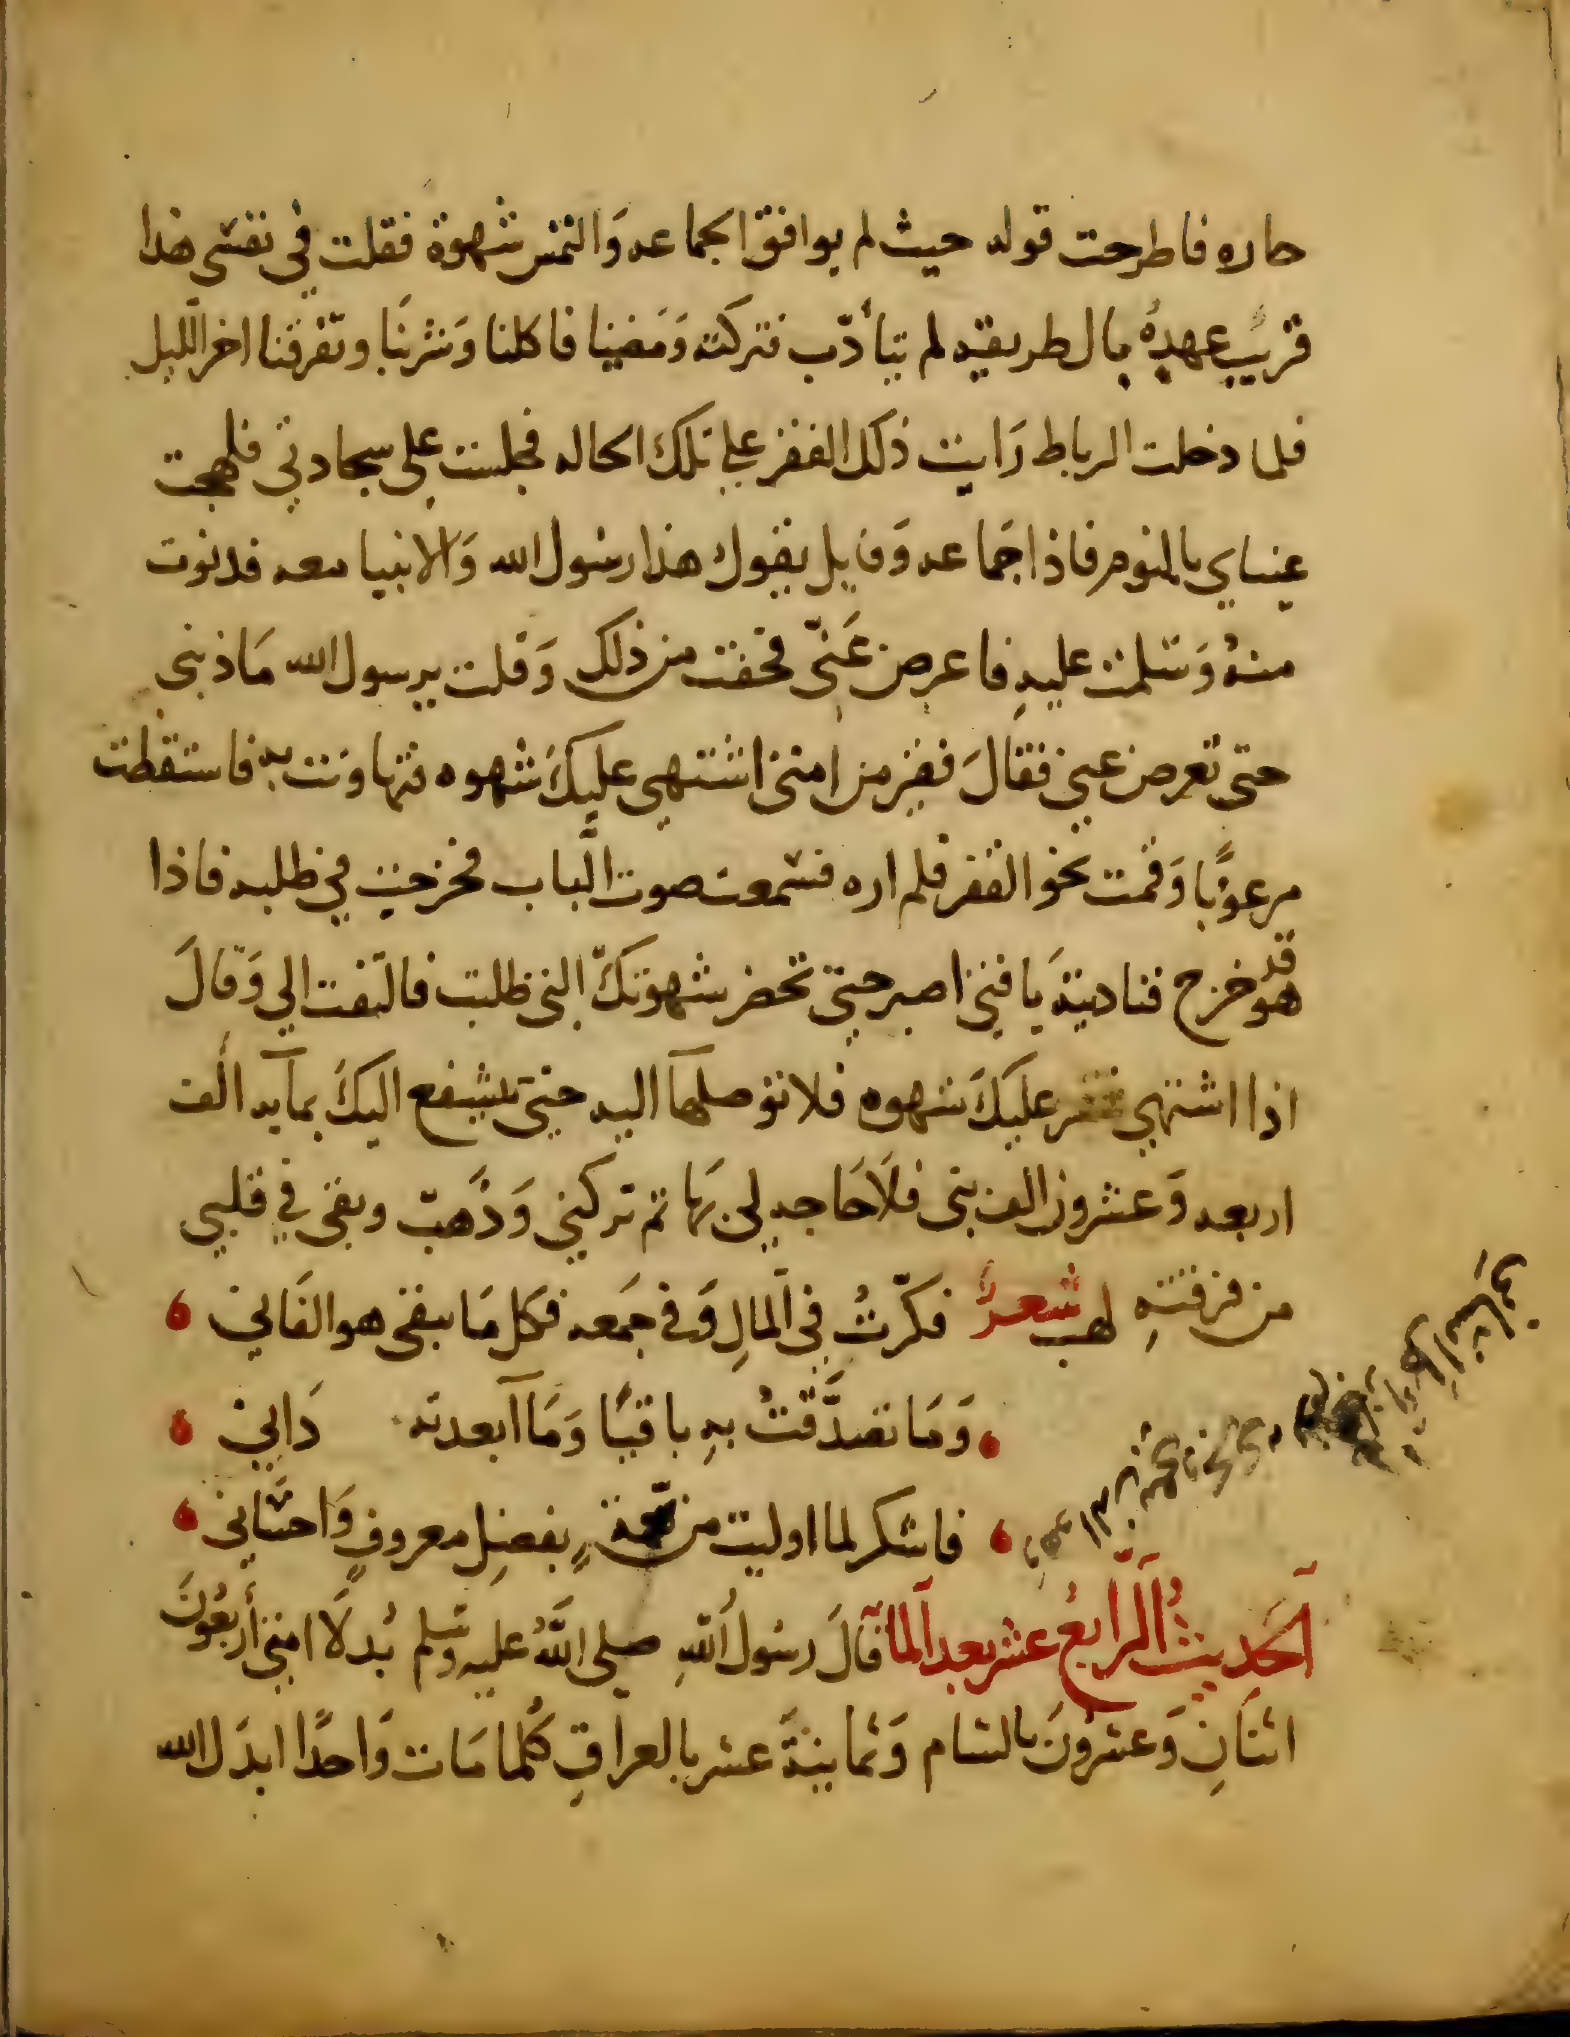 حاره فاطرحت قوله حيث لم يوافق الجماعه وَالتمس شهوة فقلت في نفسي هذا
قريبٌ عهدهُ بالطريقه لم يتأدّب فتركته وَمَضينا فاكلنا وَشربنَا وتفرقنا اخر الليل
فلما دخلت الرباط رَايت ذلك الفقير علي تلك الحاله فجلست علي سجادتي فلهجت
عيناي بالنوم فاذا جَماعه وَقايل يقول هذا رسول الله وَالانبيا معه فدنوت
منهُ وَسَلمت عليهِ فاعرض عَنيّ فخفت من ذلك وَقلت يرسول الله مَا ذنبي
حتي تعرض عني فقالَ فقير من امتي اشتهي عليكَ شهوه فتهاونت به فاستقظت
مرعوبًا وَقمت نحو الفقير فلم اره فسمعت صوت الباب فخرجت في طلبه فاذا
هو قد خرج فناديته يَا فتي اصبر حتي تحضر شهوتكَ التي طلبت فالتفت الي وَقالَ
اذا اشتهي فقير عليكَ شهوه فلا توصلها اليه حتي يشفع اليكَ بمايه الف
اربعه وَعشرون الف نبي فلَا حَاجه لي بهَا ثم تركني وَذَهبّ وبقي في قلبي
من فرقتهِ لهب شعر فكرّتُ في المالِ وَفي جَمعه فكل مَا يبقي هو الفَاني
وَمَا تصدَّقتُ بهِ باقيًا وَمَا ابعدته دَانِي
فاشكر لما اوليت من نعمة بفضلِ معروفٍ وَاحسَاني
الحَديثُ الرَّابعُ عشر بعد المآ قالَ رسُول اللهِ صلي اللهُ عليهِ وسلم بُدلَا امتي أربعُونَ
اثنَانِ وَعشرُونَ بالشام وَثمانيةَ عشر بالعراقِ كُلما مَات وَاحدًا ابدَل الله